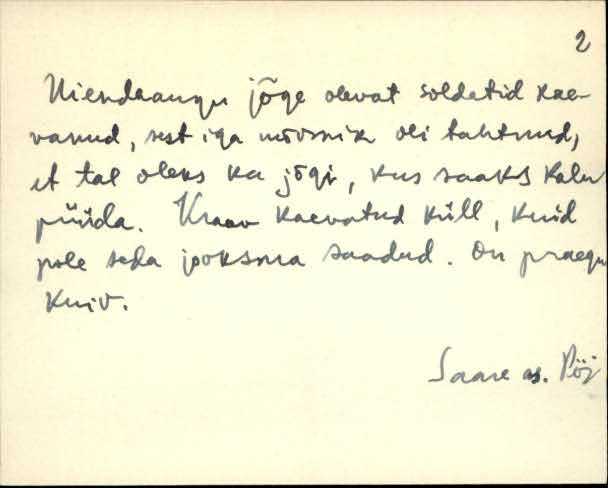 2
Uiendaaugu jõge olevat soldatid kae-
vanud, sest iga mõisnik oli tahtnud,
et tal oleks ka jõgi, kus saaks kalu
püüda. Kraav kaevatud küll, kuid
pole seda jooksma saadud. On praegu
kuiv.
Saare as. Pöi